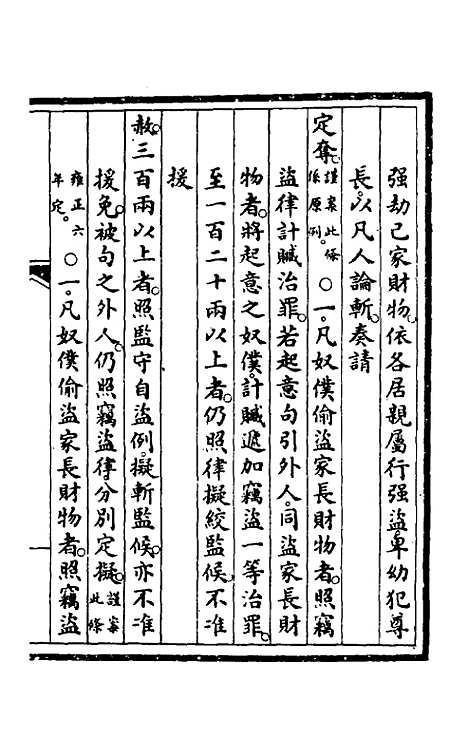 强劫己家財物。依各居親屬行强盜。卑幼犯尊
長。以凡人論斬。奏請
定奪。謹案此條係原例。○一。凡奴僕偷盜家長財物者。照竊
盜律計贓治罪。若起意句引外人。同盜家長財
物者。將起意之奴僕。計贓遞加竊盜一等治罪。
至一百二十兩以上者。仍照律擬絞監候。不准
援
赦。三百兩以上者。照監守自盜例。擬斬監候。亦不准
援免。被句之外人。仍照竊盜律。分別定擬。謹案此條
雍正六年定。○一。凡奴僕偷盜家長財物者。照竊盜